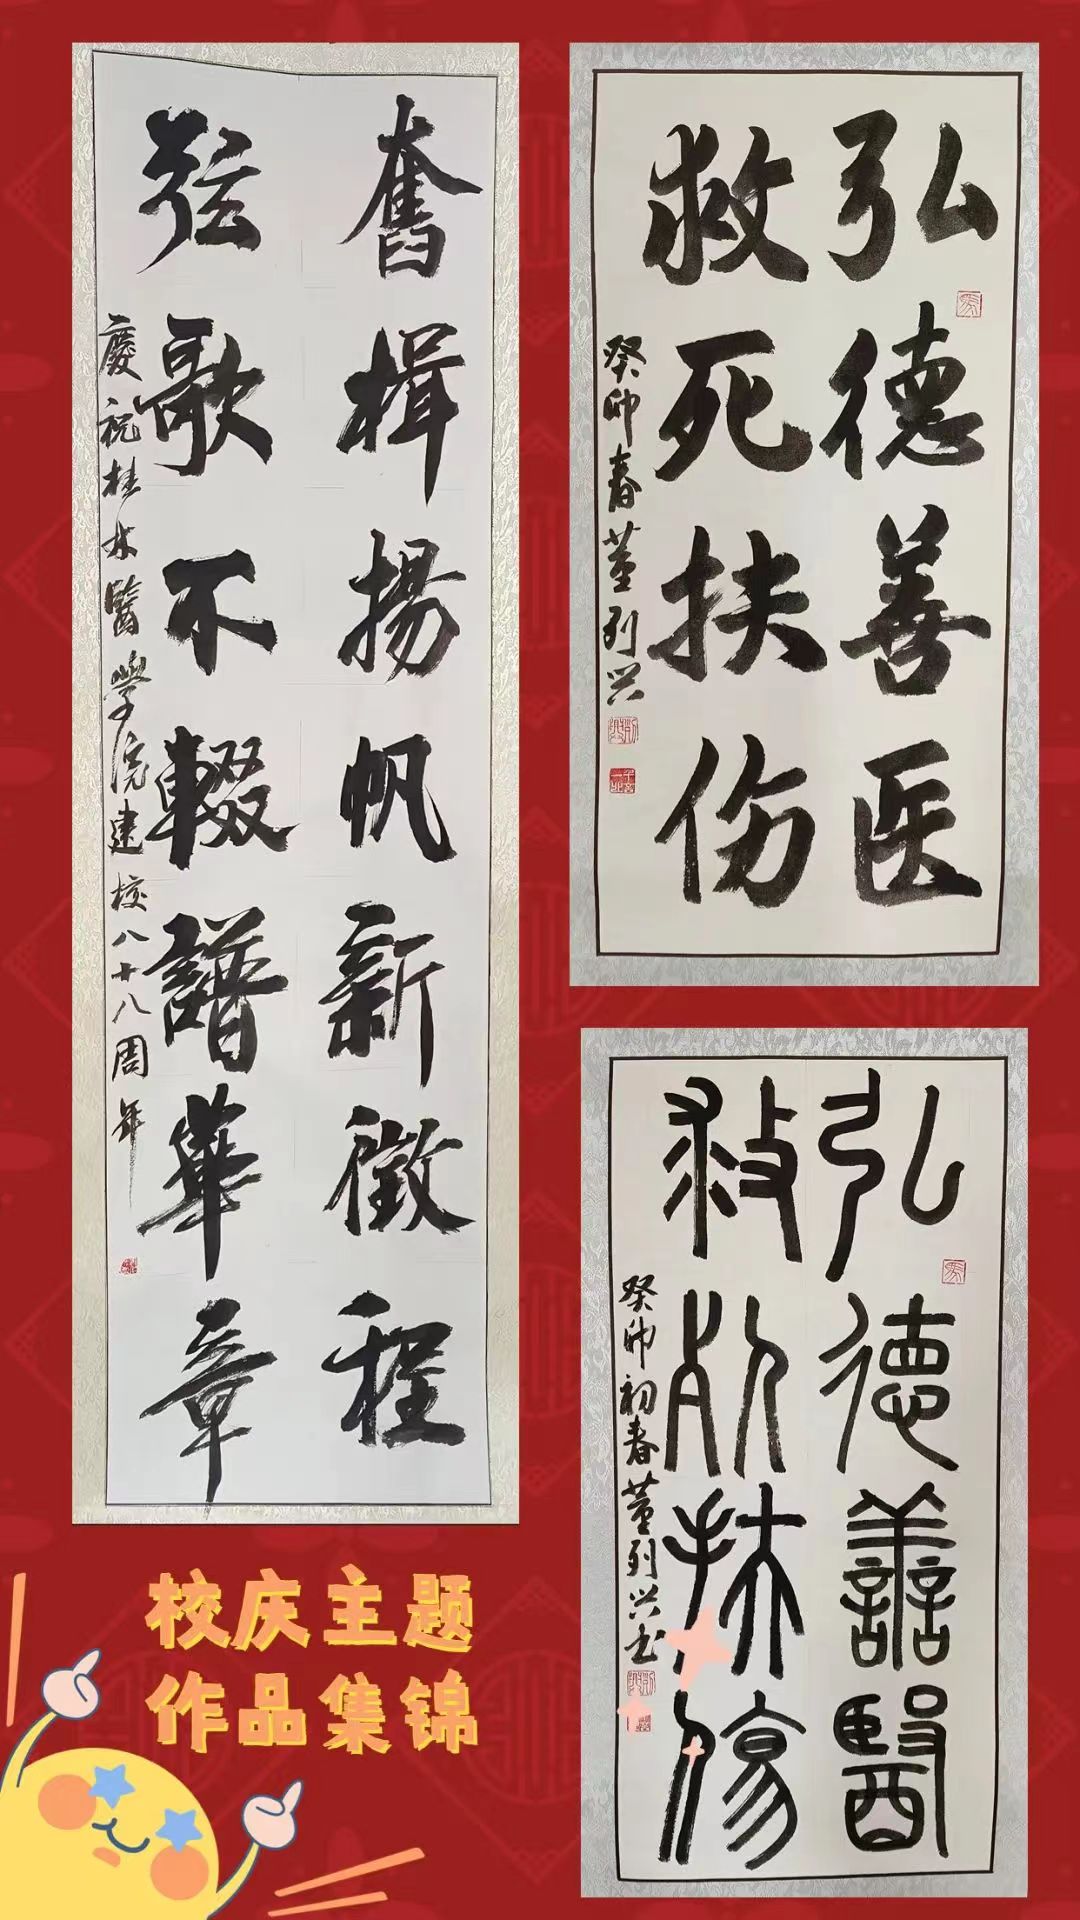 奮楫揚帆新徵程
弦歌不輟譜華章
慶祝桂林醫學院建校八十八周年
弘德善医
救死扶伤
癸卯春董列兴
弘德善醫
救死扶傷
癸卯初春董列兴书
校庆主题
作品集锦